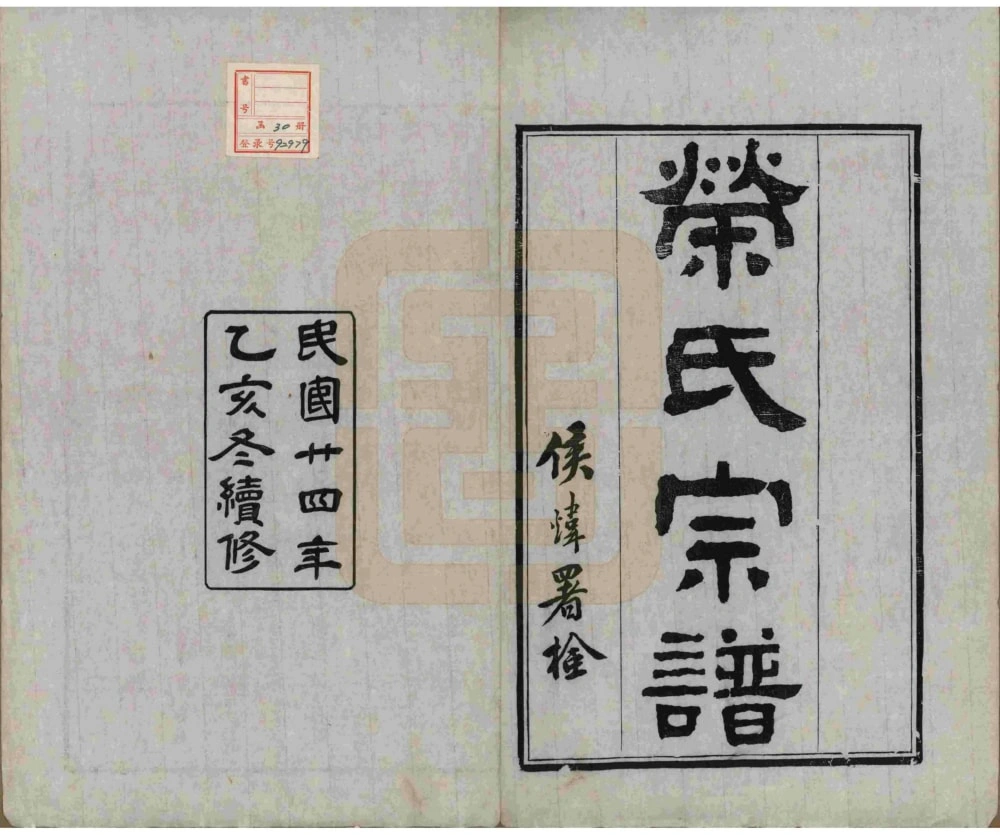 榮氏宗譜
侯㷂署檢
民國廿四年
乙亥冬續修
書號
函 30 冊
登录号92979